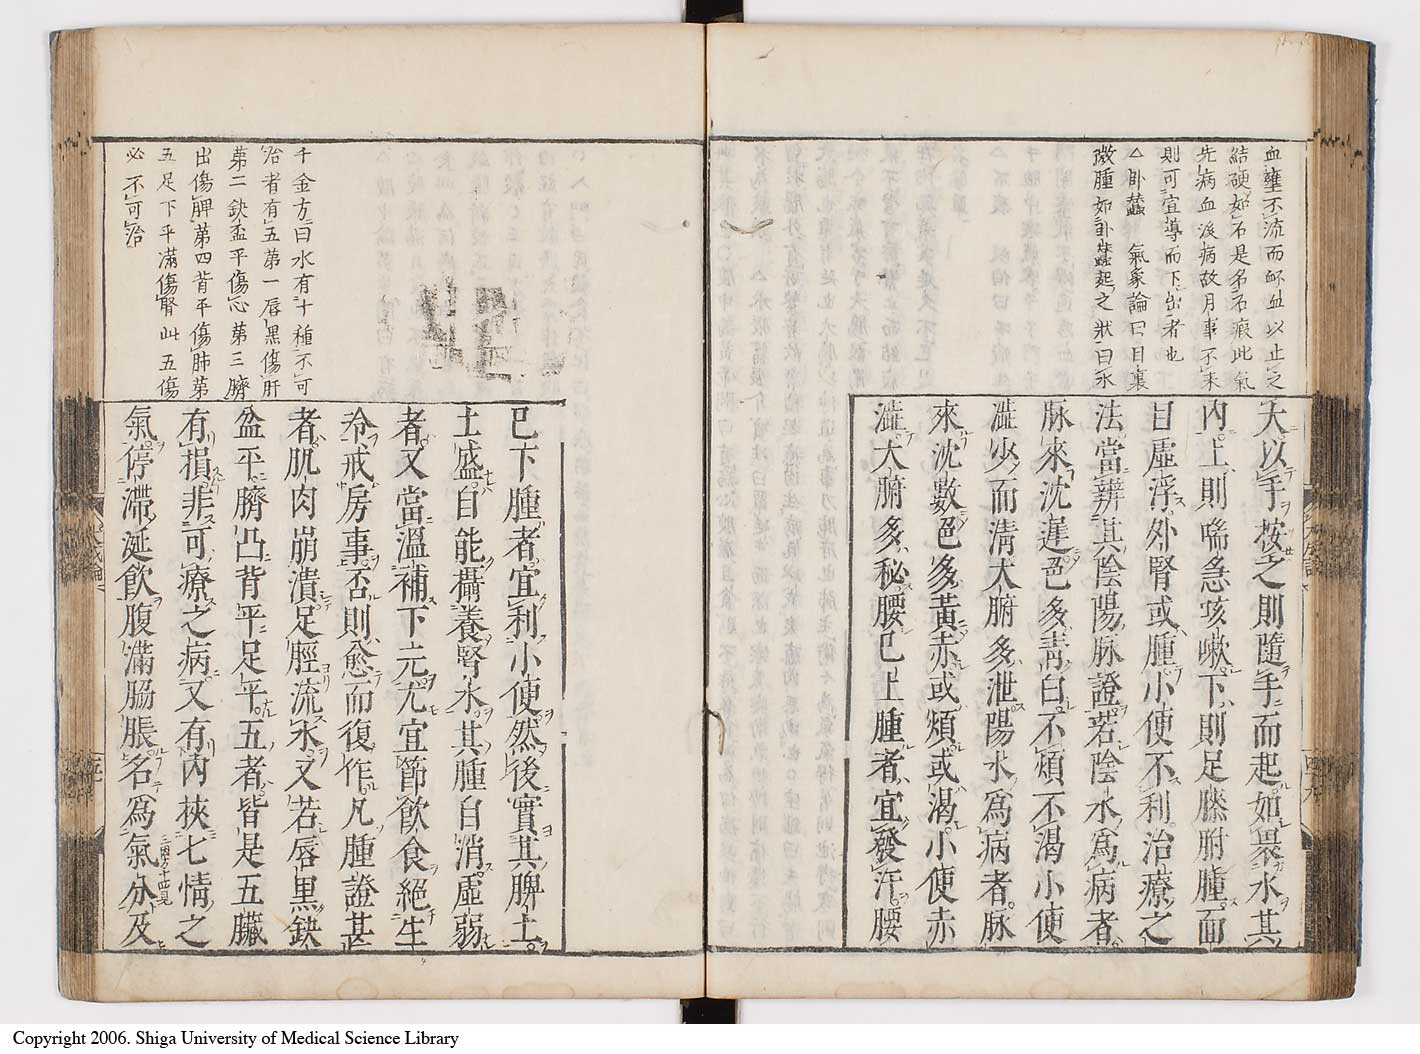 血壅不流而衃血以止之
結硬如石是名石瘕此氣
先病血後病故月事不來
則可宣導而下出者也
△卧蠶　氣象論曰目裏
微腫如卧蠶起之狀曰水
大以手按之則隨手而起如裹水其
內上則喘急咳嗽下則足膝胕腫面
目虛浮外腎或腫小便不利治療之
法當辨其陰陽脉證若陰水爲病者
脉來沈遲色多靑白不煩不渴小便
澁少而淸大腑多泄陽水爲病者脉
來沈數色多黃赤或煩或渴小便赤
澁大腑多秘腰已上腫者宜發汗腰
千金方曰水有十種不可
治者有五第一唇黑傷肝
第二缺盆平傷心第三臍
出傷脾第四背平傷肺第
五足下平滿傷腎此五傷
必不可治
已下腫者宜利小便然後實其脾土
土盛自能攝養腎水其腫自消虛弱
者又當溫補下元尤宜節飲食絕生
冷戒房事否則愈而復作凡腫證甚
者肌肉崩潰足脛流水又若唇黑缺
盆平臍凸背平足平五者皆是五臟
有損非可療之病又有內挾七情之
氣停滯涎飮腹滿脇脹名爲氣分及
Copyright 2006. Shiga University of Medical Science Library